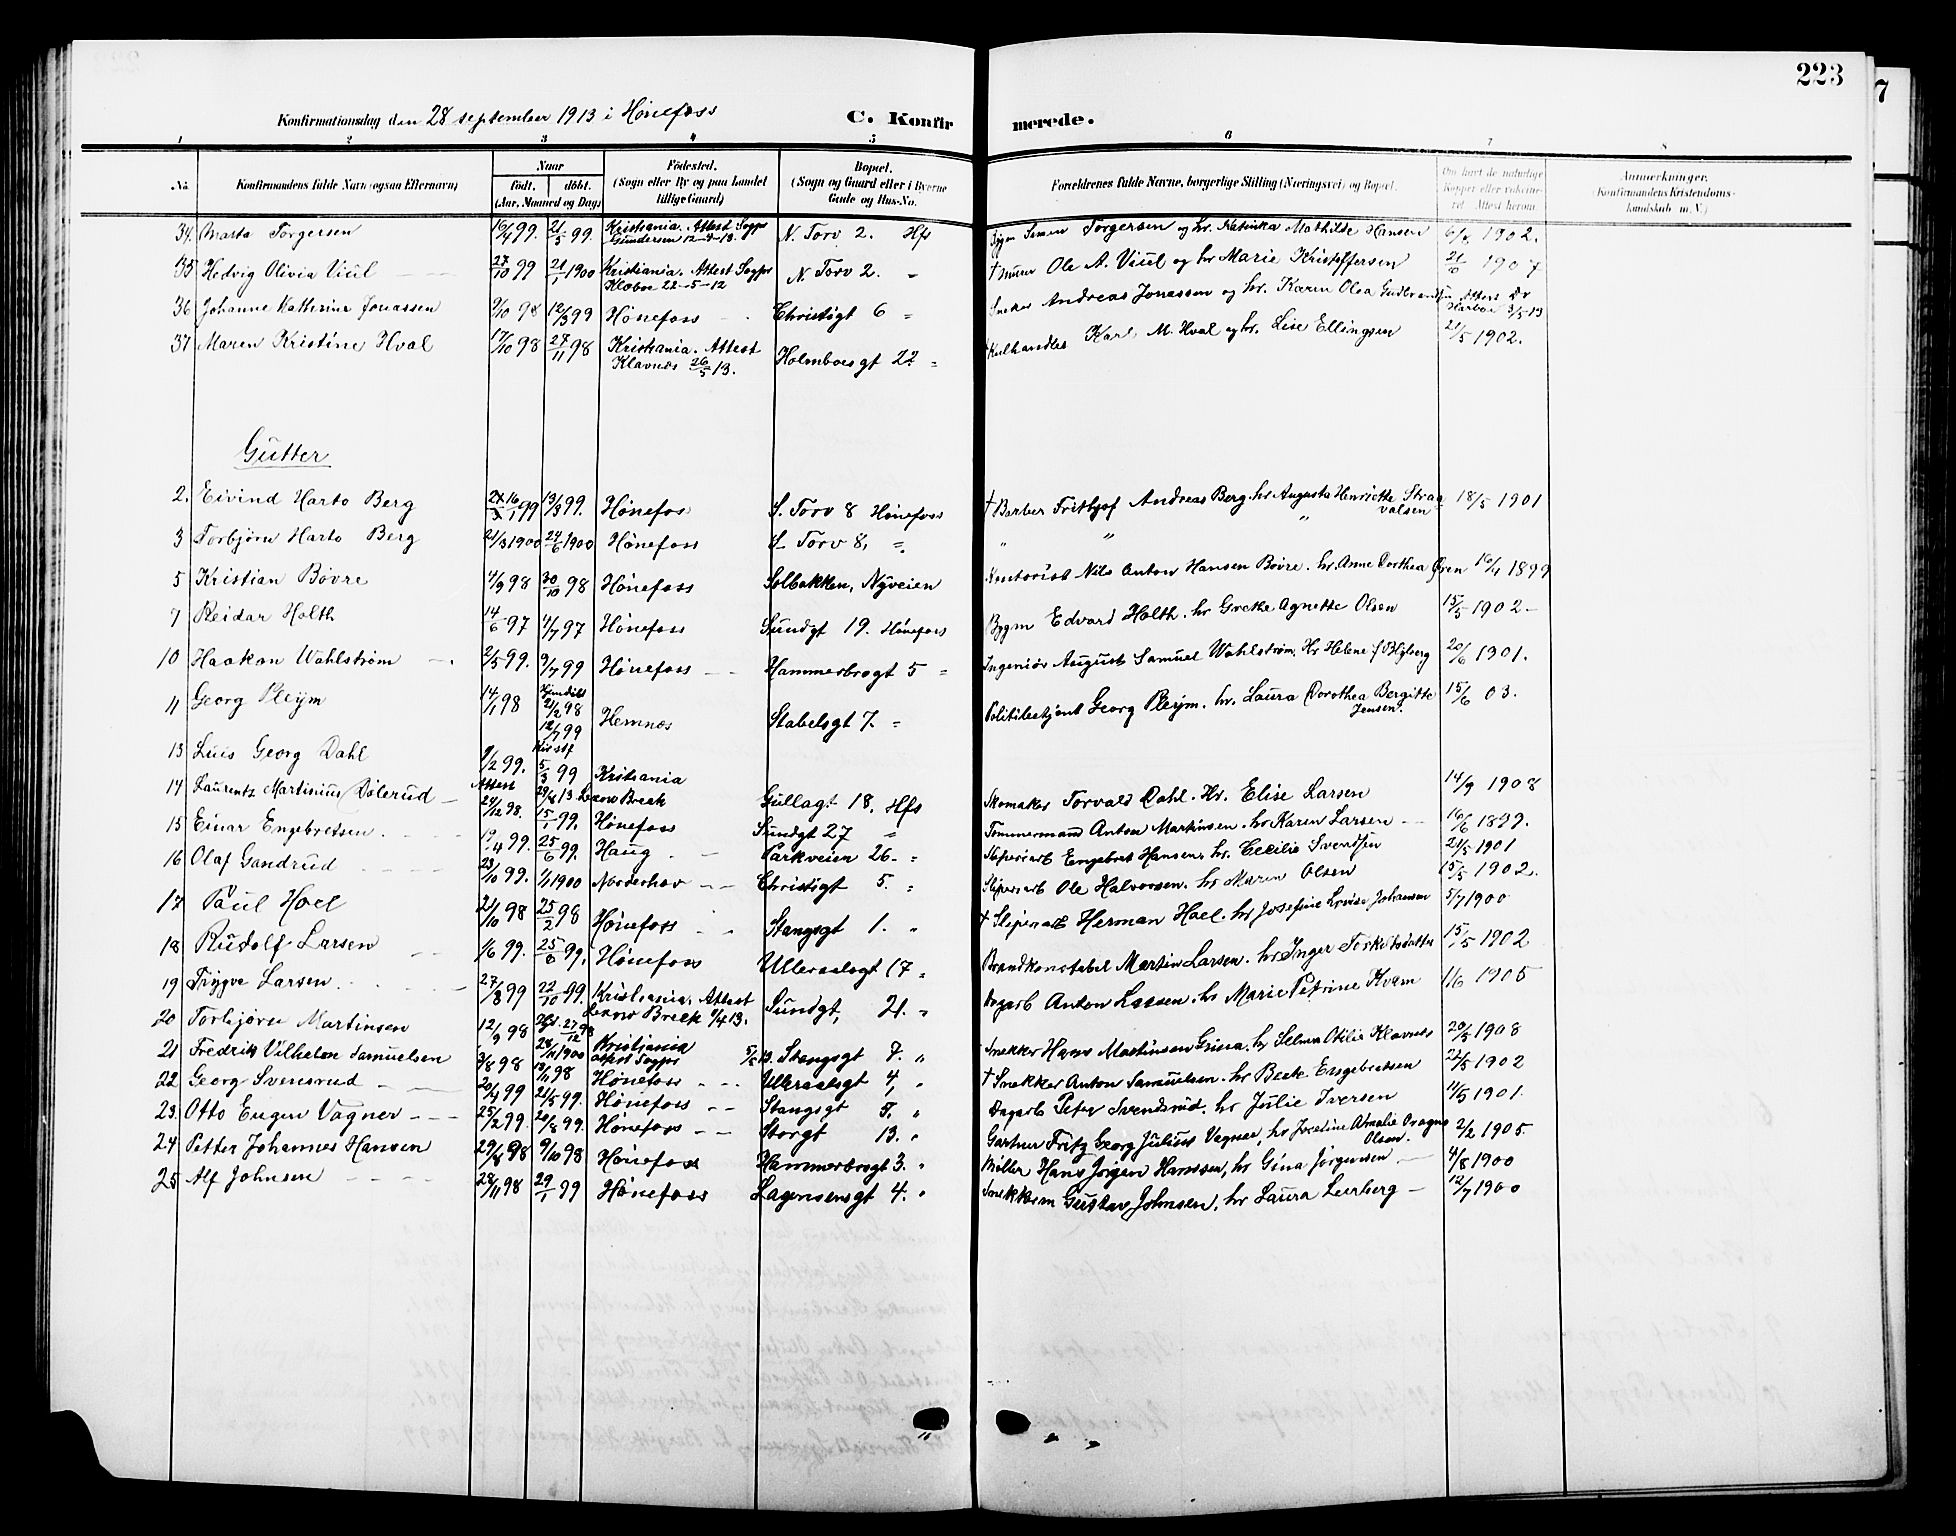 223
7
Konfirmationsdag den 28 september 1913 i Hønefoss
C. Konfirmerede.
1 2 3 4 5 6 7 8
No. Konfirmandens fulde Navn (ogsaa Efternavn) Naar født. døbt. (Aar, Maaned og Dag) Fødested. (Sogn eller By og paa Landet tillige Gaard) Bopæl. (Sogn og Gaard eller i Byerne Gade og Hus-No. Forældrenes fulde Navne, borgerlige Stilling (Næringsvei) og Bopæl. Om havt de naturlige Kopper eller vaksineret. Attest herom. Anmerkninger. Konfirmandens Kristendomskundskab m. V.)
34. Marta Torgersen 16/4 99. 21/5 99. Kristiania. Attest Sogpr Gundersen 12-9-13. N. Torv 2. Hfs Simen Torgersen og hr. Katinka Mathilde Hansen 6/8 1902.
35 Hedvig Olivia Viul 27/10 99 21/1 1900 Kristiania. Attest Sogpr Klæboe 22-5-12 N. Torv 2. " † murer Ole A. Viul og hr Marie Kristoffersen 21/10 1907
36 Johanne Kathrine Jonassen 9/10 98 12/3 99 Hønefoss Christiegt 6 " Snekker Andreas Jonassen og hr. Karen Olea Gudbrandsen Attest Dr Harboe 3/5 13
37 Maren Kristine Hval 17/10 98 27/11 98 Kristiania. Attest Klavnæs 26/5 13. Holmboesgt 22 " Kulhandler Karl M. Hval og hr. Lise Ellingsen 21/5 1902.
Gutter
2. Eivind Harto Berg 16/1 99 13/3 99. Hønefos S. Torv 8 Hønefoss † Barber Frithjof Andreas Berg. hr Augusta Henriette Straavalsen 18/5 1901
3 Torbjørn Harto Berg 21/3 1900 24/6 1900 Hønefoss S. Torv 8, " " "
5 Kristian Bøvre 4/9 98 30/10 98 Hønefoss Solbakken, Nyveien Kontorist Nils Anton Hansen Bøvre. hr. Anne Dorthea Øren 16/4 1899
7 Reidar Holth 14/6 97 4/7 97 Hønefoss Sundgt 19. Hønefoss Bygm Edvard Holth. hr Grethe Agnette Olsen 15/5 1902
10 Haakon Wahlström 2/5 99. 9/7 99 Hønefoss Hammerbrogt 5 " Ingeniør August Samuel Wahlstrøm. Hr Helene f. Myberg 20/6 1901.
11 Georg Pleym 14/1 98 Hjemdøbt 21/2 98 12/7 99 Hemnæs Stabelsgt 7. " Politibetjent Georg Pleym. hr. Laura Dorothea Bergitte Jensen. 15/6 03.
13 Luis Georg Dahl 9/2 99. 5/3 99 Kristiania Gullagt 18. Hfs Skomaker Torvald Dahl. Hr. Elise Larsen 14/9 1908
14 Laurentz Martinius Dølerud 24/12 98. 15/1 99. Hønefoss Sundgt 27 " Tømmermand Anton Martinsen. hr Karen Larsen 16/6 1899.
15 Einar Engebretsen 19/4 99. 25/6 99. Haug Parkveien 26. " Sliperiarb Engebret Hansen, hr. Cecilie Svendsen 21/5 1901
16 Olaf Gandrud 23/10 99. 1/1 1900 Norderhov Christiegt 5. " Sliperiarb Ole Halvorsen. hr Maren Olsen 15/5 1902.
17 Paul Hoel 21/10 98 25/2 98 Hønefoss Stangsgt 1. " † Sliperiarb Herman Hoel. hr Josefine Lovise Johansen 5/7 1900
18 Rudolf Larsen 1/6 99. 25/8 99. Hønefoss Ulleraalsgt 17 " Brandkonstabel Martin Larsen. hr Inger Torkelsdatter 15/5 1902
19 Trygve Larsen 27/8 99 22/10 99. Kristiania. Attest Breek 9/4 13. Sundgt, 21. " Dagarb Anton Larsen. hr Marie Petrine Kvam 1/6 1905
20 Torbjørn Martinsen 12/9 98 27/12 98 28/11 1900 Kristiania attest Sogpr 5/5 13. Stangsgt 7. " Snekker Hans Martinsen Grina. hr Selma Otilie Klavnes 20/5 1908
21 Fredrik Vilhelm Samuelsen 3/8 98 13/11 98 Hønefoss Ulleraalsgt 4, " † Snekker Anton Samuelsen. hr Beate Engebretsen 22/5 1902
22 Georg Svensrud 20/4 99 21/5 99. Hønefoss Stangsgt 5. " Dagarb Peter Svendsrud. hr Julie Iversen 11/5 1901.
23. Otto Eugen Vagner 25/2 99. 20/8 99. Hønefoss Storgt 13. " Gartner Fritz Georg Julius Vagner, hr Josefine Amalie Dragnes Olsen. 2/2 1905.
24 Petter Johannes Hansen 29/8 98 9/10 98 Hønefoss Hammerbrogt 3. " Møller Hans Jørgen Hanssen, hr Gina Jørgensen 4/8 1900
25 Alf Johnsen 28/11 98 29/1 99 Hønefoss Lagesensgt 4. " Snekkerm Gustav Johnsen, hr Laura Leirberg 12/7 1900